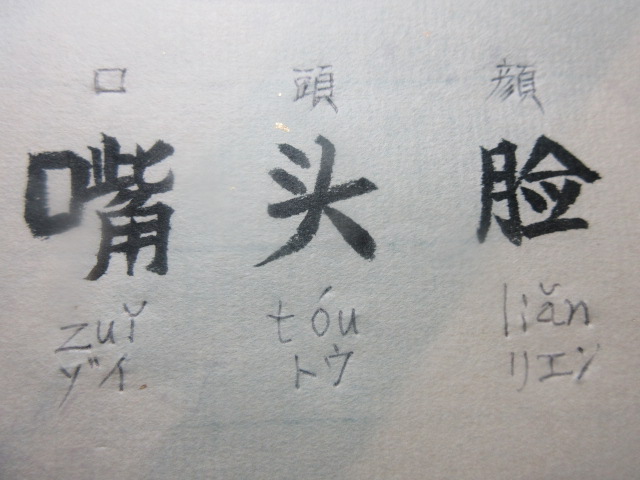 口 頭 顔
嘴 头 脸
zuǐ tóu liǎn
ヅイ トウ リエン